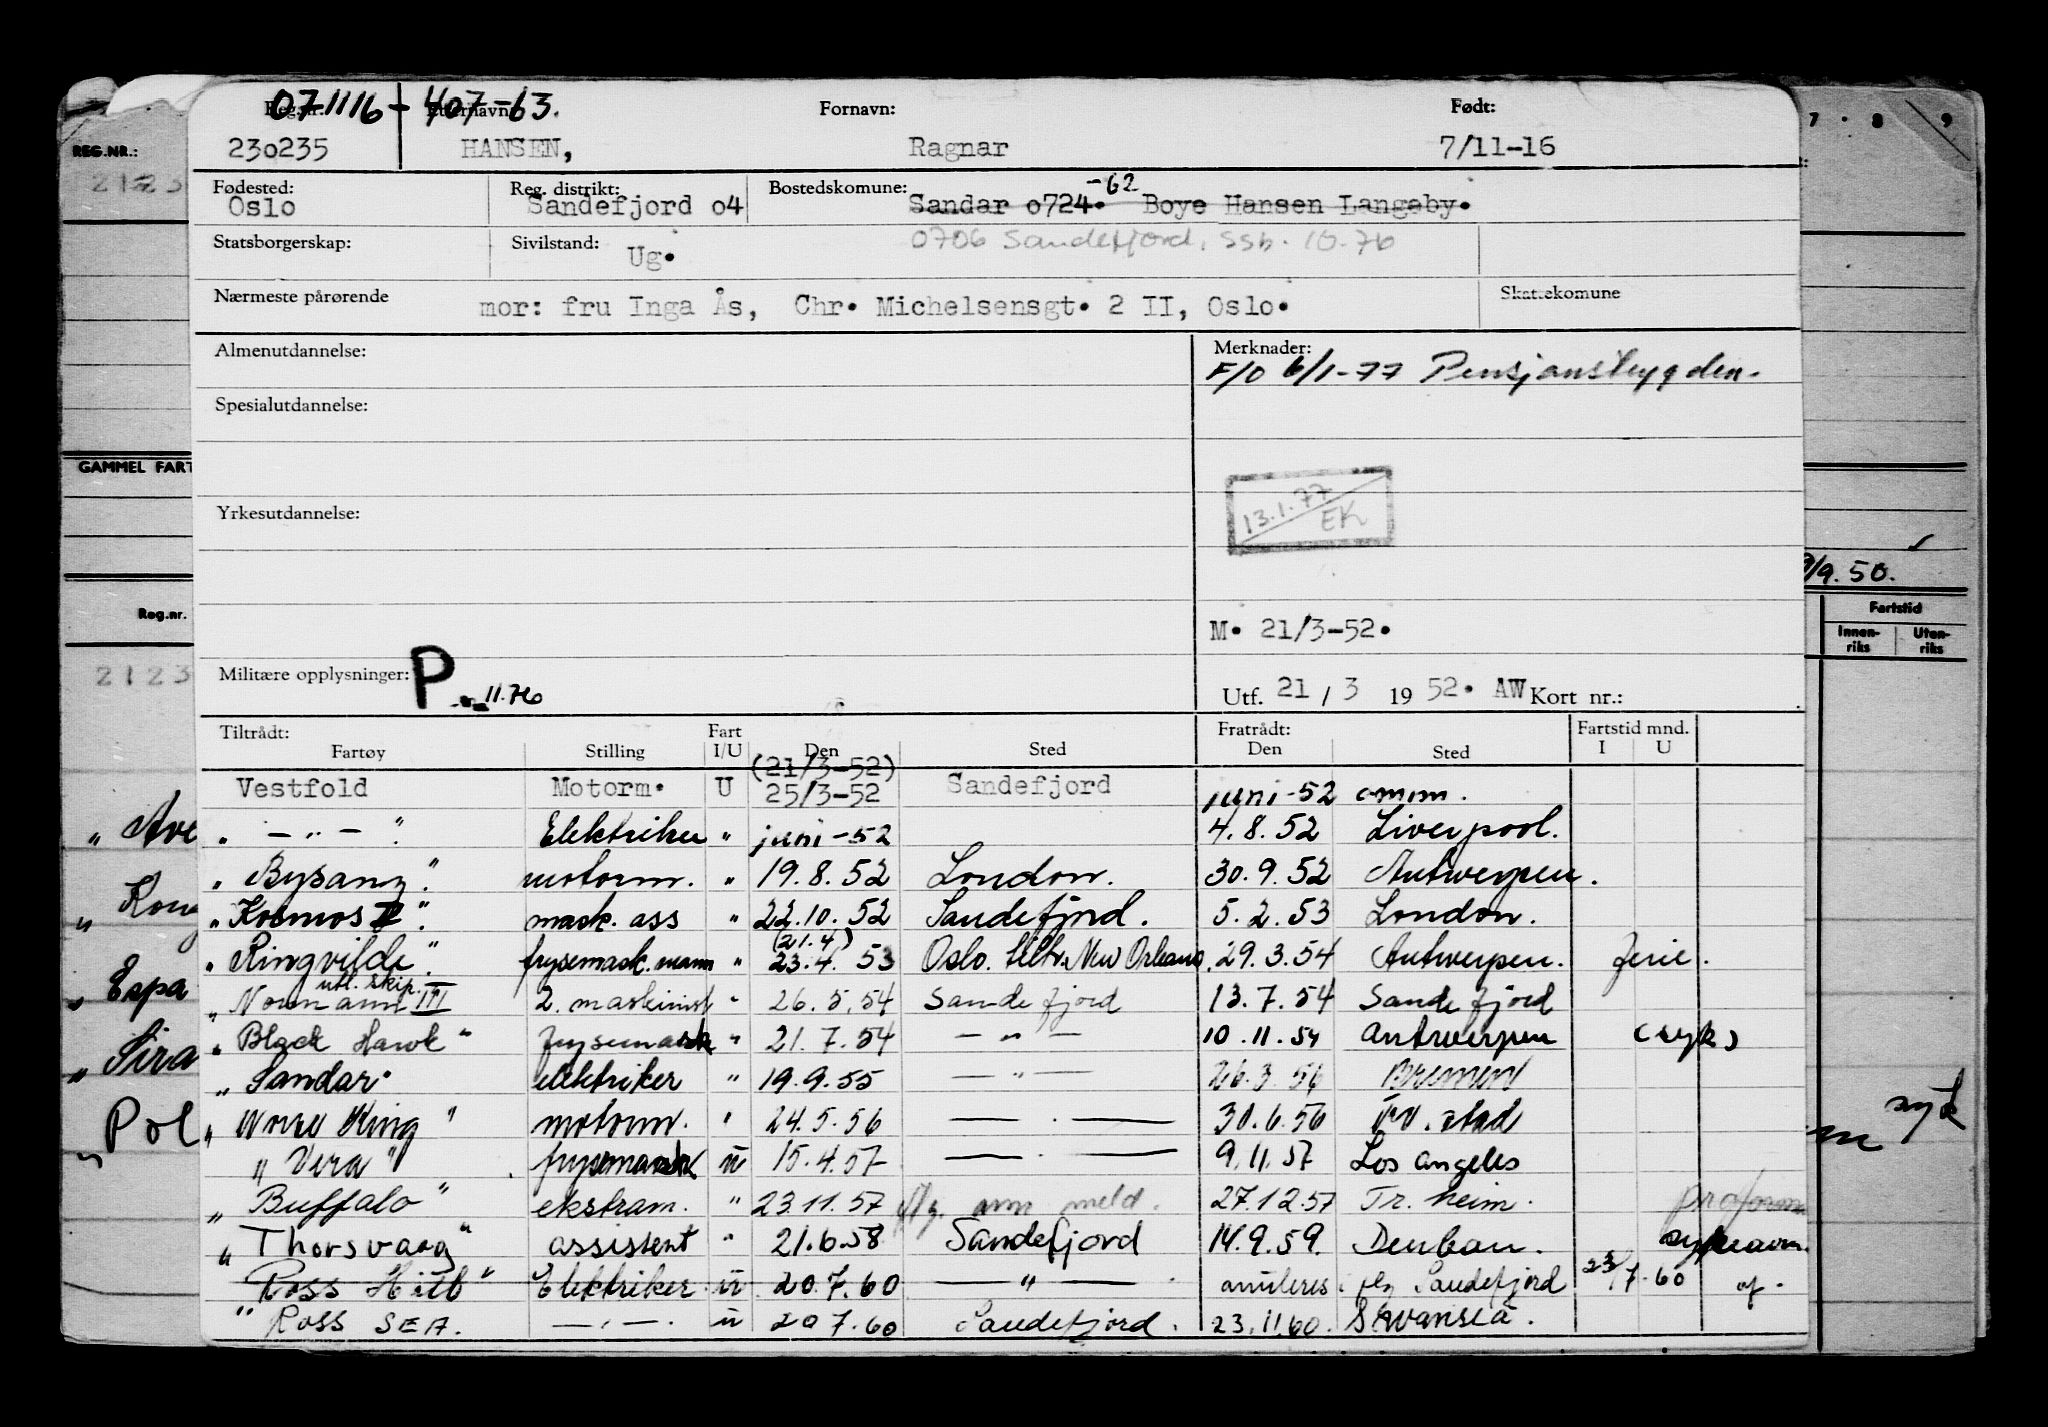 071116-40763.
Reg.nr. Etternavn: Fornavn: Født:
230235 HANSEN, Ragnar 7/11-16
Fødested: Reg. distrikt: Bostedskomune: -62
Oslo Sandefjord o4 Sandar o724. Boye Hansen Langeby.
Statsborgerskap: Sivilstand: Ug. 0706 Sandefjord, ssb. 10-76
Nærmeste pårørende mor: fru Inga Ås, Chr. Michelsensgt. 2 II, Oslo. Skattekomune
Almenutdannelse: Merknader:
F/O 6/1-77 Pensjonstrygden.
Spesialutdannelse:
13.1.77
EK
Yrkesutdannelse:
M. 21/3-52.
Militære opplysninger: P 11.76
Utf. 21/3 1952. AW Kort nr.:
Tiltrådt: Fart Fratrådt: Fartstid mnd.
Fartøy Stilling I/U Den Sted Den Sted I U
(21/3-52)
Vestfold Motorm. U 25/3-52 Sandefjord juni-52 omm.
" — " — " Elektriker " juni-52 4.8.52 Liverpool.
"Bysanz". motorm. " 19.8.52 London. 30.9.52 Antwerpen.
"Kosmos V". mask. ass " 22.10.52 Sandefjord. 5.2.53 London.
(21.4)
"Ringvilde". frysemask.mann " 23.4.53 Oslo. tiltr. New Orleans. 29.3.54 Antwerpen. ferie.
utl. skip.
"Normann III 2. maskinist " 26.5.54 Sandefjord 13.7.54 Sandefjord
"Black Hawk" frysemask " 21.7.54 — " — 10.11.54 Antwerpen (syk)
"Sandar" elektriker " 19.9.55 — " — 26.3.56 Bremen
"Norse King" motorm. " 24.5.56 — . — 30.6.56 Fr.stad
"Vera" frysemask u 15.4.57 — . — 9.11.57 Los Angeles
"Buffalo" ekstram. " 23.11.57 flg. ann meld. 27.12.57 Tr.heim. proform
"Thorsvaag" assistent " 21.6.58 Sandefjord 14.9.59. Durban. sykeavm.
"Ross Hill" Elektriker u 20.7.60 — " — anuleres iflg Sandefjord 23/7-60 of.
"Ross SEA. — " — u 20 7.60 Sandefjord. 23.11.60. Swansea.
REG.NR.:
2123
GAMMEL FART
Reg.nr.
2123
" Ave
" Kong
" Espa
" Sira
" Pol
7 . 8 9
/9.50.
Fartstid
Innen-riks Uten-riks
syk